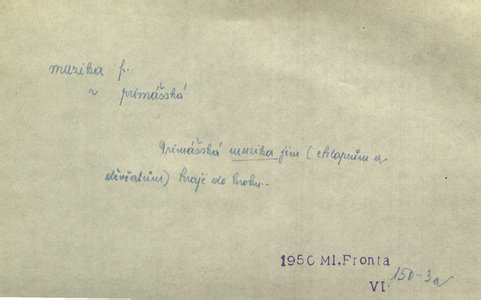 muzika f.
~ primášská
Primášská muzika jim (chlapům a
děvčatům) hraje do kroku.
1950 Ml.Fronta
VI. 150-3a